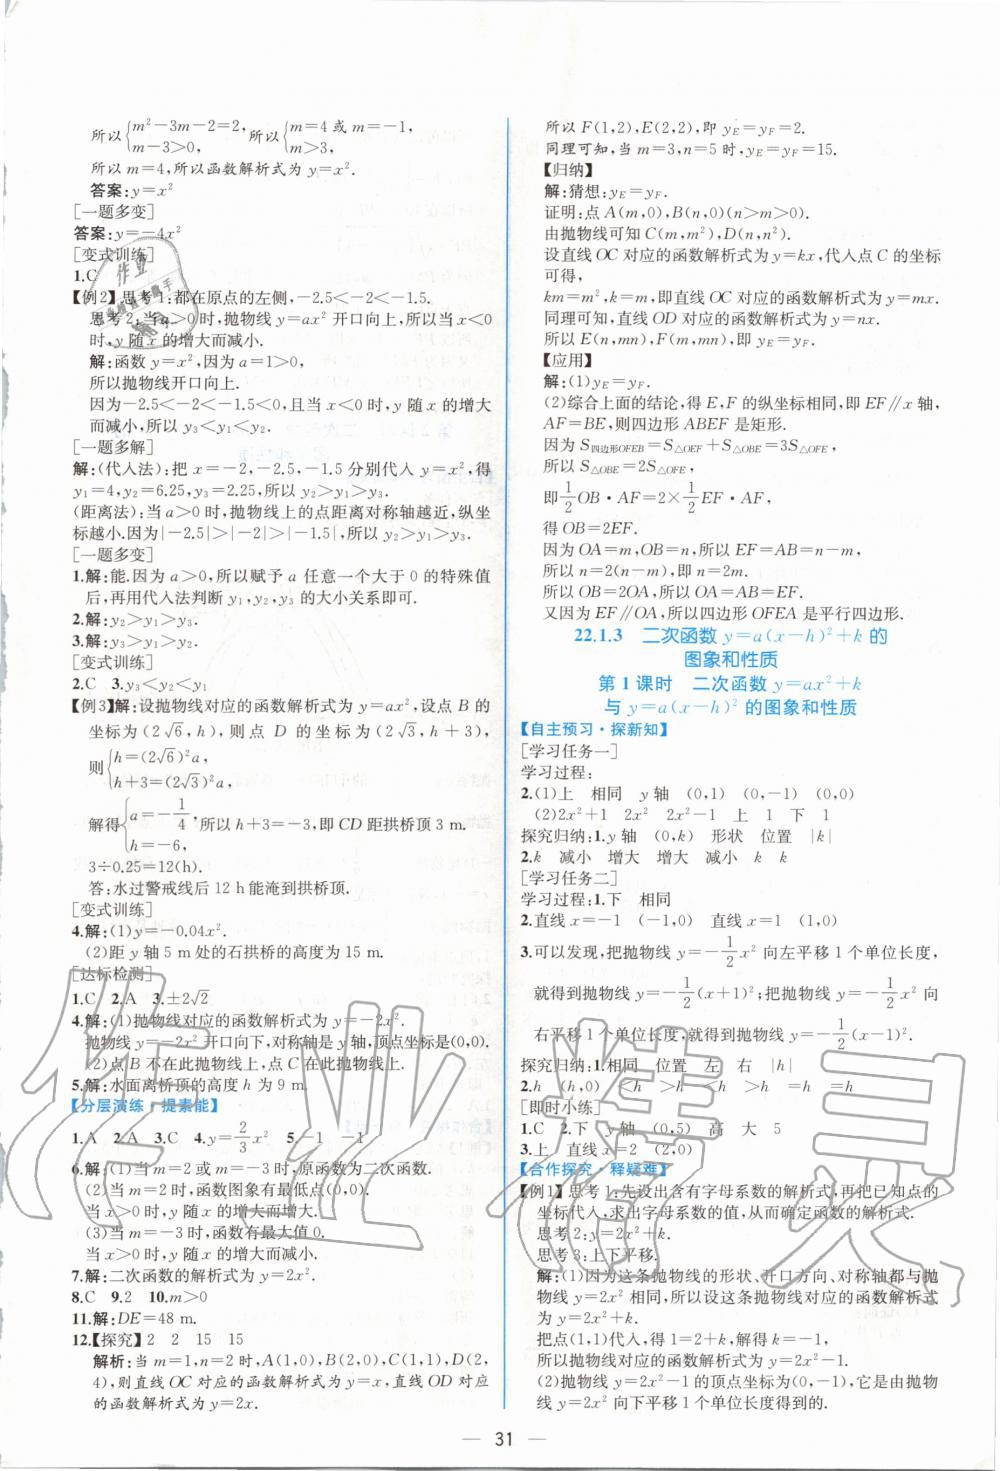 所以{m²-3m-2=2, m-3>0, 所以{m=4或m=-1, m>3,
所以m=4,所以函数解析式为y=x².
答案:y=x²
[一题多变]
答案:y=-4x²
[变式训练]
1.C
【例2】思考1:都在原点的左侧,-2.5<-2<-1.5.
思考2:当a>0时,抛物线y=ax²开口向上,所以当x<0
时,y随x的增大而减小.
解:函数y=x²,因为a=1>0,
所以抛物线开口向上.
因为-2.5<-2<-1.5<0,且当x<0时,y随x的增大
而减小,所以y₃<y₁<y₂.
[一题多解]
解:(代入法):把x=-2,-2.5,-1.5分别代入y=x²,得
y₁=4,y₂=6.25,y₃=2.25,所以y₂>y₁>y₃.
(距离法):当a>0时,抛物线上的点距离对称轴越近,纵坐
标越小.因为|-2.5|>|-2|>|-1.5|,所以y₂>y₁>y₃.
[一题多变]
1.解:能.因为a>0,所以赋予a任意一个大于0的特殊值
后,再用代入法判断y₁,y₂,y₃的大小关系即可.
2.解:y₂>y₁>y₃.
3.解:y₃>y₁>y₂.
[变式训练]
2.C 3.y₃<y₂<y₁
【例3】解:设抛物线对应的函数解析式为y=ax²,设点B的
坐标为(2√6,h),则点D的坐标为(2√3,h+3),
则{h=(2√6)²a, h+3=(2√3)²a,
解得{a=-1/4, h=-6, 所以h+3=-3,即CD距拱桥顶3 m.
3÷0.25=12(h).
答:水过警戒线后12 h能淹到拱桥顶.
[变式训练]
4.解:(1)y=-0.04x².
(2)距y轴5 m处的石拱桥的高度为15 m.
[达标检测]
1.C 2.A 3.±2√2
4.解:(1)抛物线对应的函数解析式为y=-2x².
抛物线y=-2x²开口向下,对称轴是y轴,顶点坐标是(0,0).
(2)点B不在此抛物线上,点C在此抛物线上.
5.解:水面离桥顶的高度h为9 m.
【分层演练·提素能】
1.A 2.A 3.C 4.y=2/3x² 5.-1 -1
6.解:(1)当m=2或m=-3时,原函数为二次函数.
(2)当m=2时,函数图象有最低点(0,0).
当x>0时,y随x的增大而增大.
(3)当m=-3时,函数有最大值0.
当x>0时,y随x的增大而减小.
7.解:二次函数的解析式为y=2x².
8.C 9.2 10.m>0
11.解:DE=48 m.
12.【探究】2 2 15 15
解析:当m=1,n=2时,A(1,0),B(2,0),C(1,1),D(2,
4),则直线OC对应的函数解析式为y=x,直线OD对应
的函数解析式为y=2x.
所以F(1,2),E(2,2),即y_E=y_F=2.
同理可知,当m=3,n=5时,y_E=y_F=15.
【归纳】
解:猜想:y_E=y_F.
证明:点A(m,0),B(n,0)(n>m>0).
由抛物线可知C(m,m²),D(n,n²).
设直线OC对应的函数解析式为y=kx,代入点C的坐标
可得,
km=m²,k=m,即直线OC对应的函数解析式为y=mx.
同理可知,直线OD对应的函数解析式为y=nx.
所以E(n,mn),F(m,mn),即y_E=y_F.
【应用】
解:(1)y_E=y_F.
(2)综合上面的结论,得E,F的纵坐标相同,即EF∥x轴,
AF=BE,则四边形ABEF是矩形.
因为S四边形OFEB=S△OEF+S△OBE=3S△OFE,
所以S△OBE=2S△OFE,
即1/2OB·AF=2×1/2EF·AF,
得OB=2EF.
因为OA=m,OB=n,所以EF=AB=n-m,
所以n=2(n-m),即n=2m.
所以OB=2OA,所以EF=AB=OA.
又因为EF∥OA,所以四边形OFEA是平行四边形.
22.1.3 二次函数y=a(x-h)²+k的
图象和性质
第1课时 二次函数y=ax²+k
与y=a(x-h)²的图象和性质
【自主预习·探新知】
[学习任务一]
学习过程:
2.(1)上 相同 y轴 (0,1) (0,-1) (0,0)
(2)2x²+1 2x² 2x²-1 上 1 下 1
探究归纳:1.y轴 (0,k) 形状 位置 |k|
2.k 减小 增大 增大 减小 k k
[学习任务二]
学习过程:1.下 相同
2.直线x=-1 (-1,0) 直线x=1 (1,0)
3.可以发现,把抛物线y=-1/2x²向左平移1个单位长度,
就得到抛物线y=-1/2(x+1)²;把抛物线y=-1/2x²向
右平移1个单位长度,就得到抛物线y=-1/2(x-1)².
探究归纳:1.相同 位置 左 右 |h|
2.h (h,0) <h >h <h >h =h =h
[即时小练]
1.C 2.下 y轴 (0,5) 高 大 5
3.上 直线x=2 (2,0)
【合作探究·释疑难】
【例1】思考1:先设出含有字母系数的解析式,再把已知点的
坐标代入,求出字母系数的值,从而确定函数的解析式.
思考2:y=2x²+k.
思考3:上下平移.
解:(1)因为这条抛物线的形状、开口方向、对称轴都与抛
物线y=2x²相同,所以设这条抛物线对应的函数解析式
为y=2x²+k.
把点(1,1)代入,得1=2+k,解得k=-1.
所以抛物线对应的函数解析式为y=2x²-1.
(2)抛物线y=2x²-1的顶点坐标为(0,-1),它是由抛物
线y=2x²向下平移1个单位长度得到的.
— 31 —
作业精灵